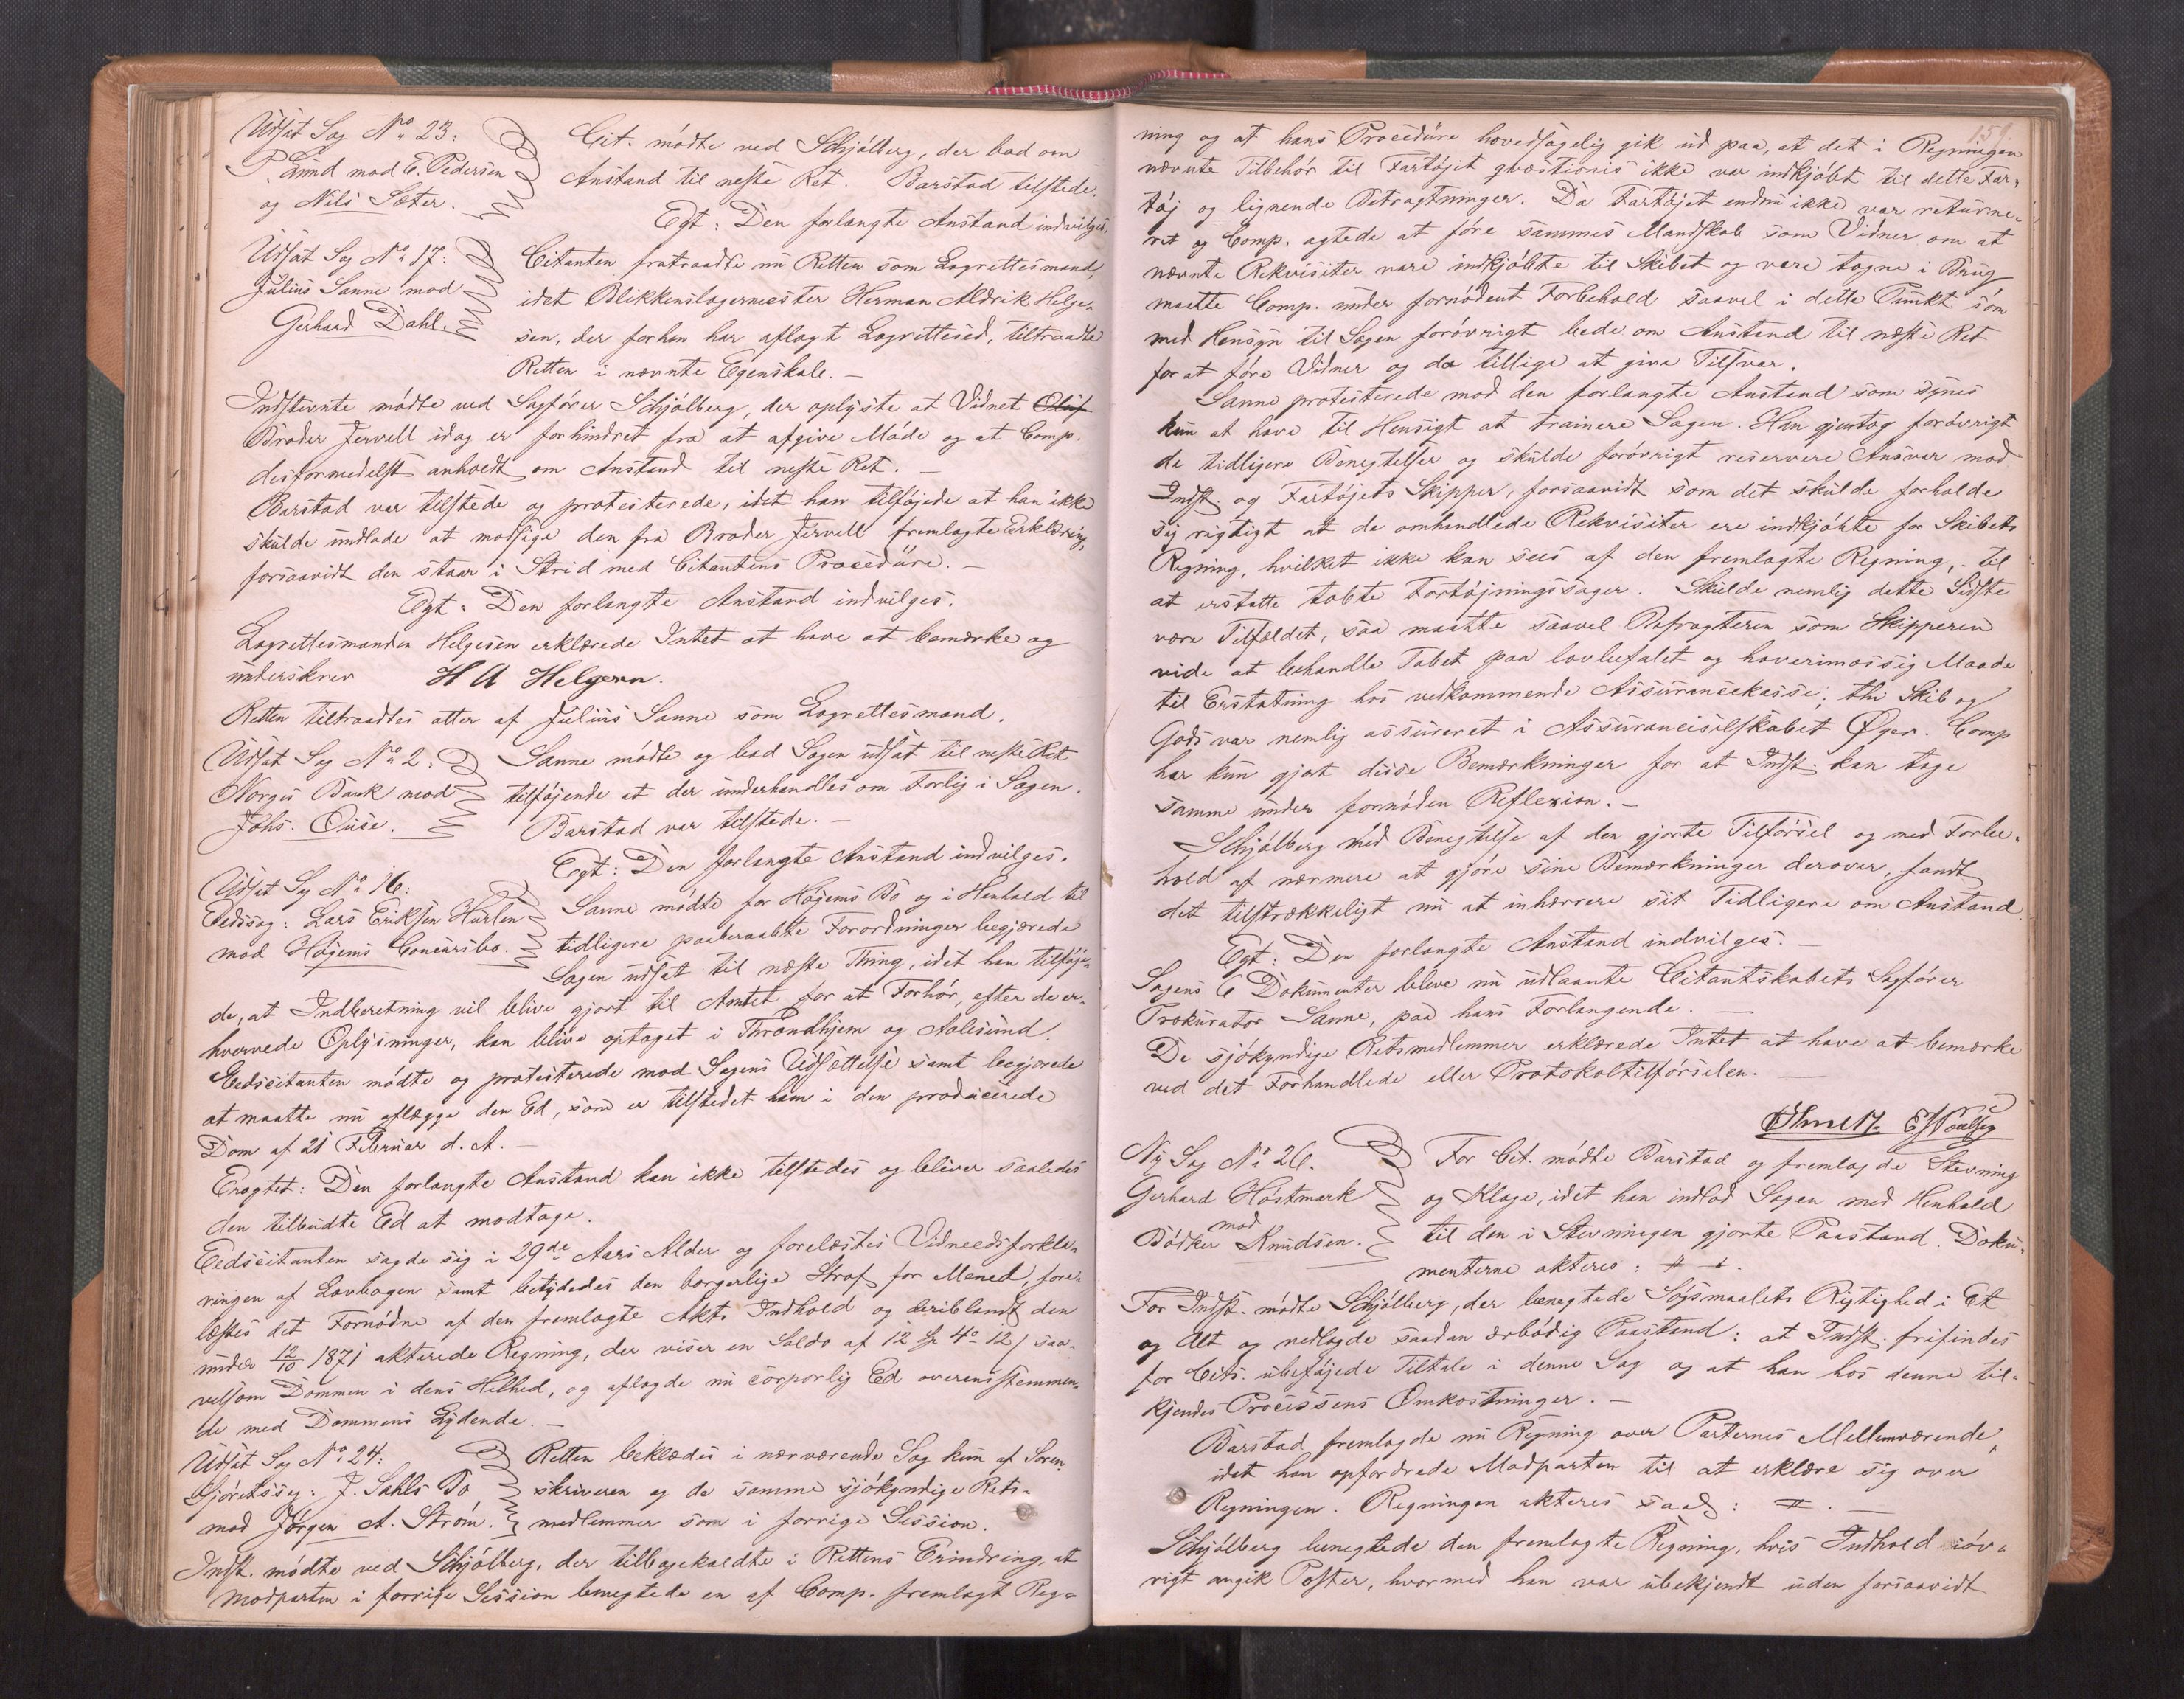 Udsat Sag No 23:
P. Lund mod E. Pedersen
og Nils Sæter.
Cit. mødte ved Schjølberg, der bad om
Anstand til neste Ret. Barstad tilstede.
Egt: Den forlangte Anstand indvilges.
Udsat Sag No 17:
Julius Sanne mod
Gerhard Dahl.
Citanten fratraadte nu Retten som Lagrettesmand,
idet Blikkenslagermester Herman Aldrik Helge-
sen, der forhen har aflagt Lagrettesed, tiltraadte
Retten i nævnte Egenskab. –
Indstevnte mødte ved Sagfører Schjølberg, der oplyste at Vidnet Oluf
Broder Jervell idag er forhindret fra at afgive Møde og at Comp.
desformedelst anholdt om Anstand til neste Ret. –
Barstad var tilstede og protesterede, idet han tilføjede at han ikke
skulde undlade at modsige den fra Broder Jervell fremlagte Erklæring,
forsaavidt den staar i Strid med Citantens Procedure. –
Egt: Den forlangte Anstand indvilges.
Lagrettesmanden Helgesen erklærede Intet at have at bemærke og
underskrev H A Helgesen.
Retten tiltraadtes atter af Julius Sanne som Lagrettesmand.
Udsat Sag No 2:
Norges Bank mod
Johs. Ouse.
Sanne mødte og bad Sagen udsat til neste Ret
tilføjende at der underhandles om Forlig i Sagen.
Barstad var tilstede. –
Egt: Den forlangte Anstand indvilges.
Udsat Sag No 16:
Eedssag: Lars Eriksen Hurlen
mod Høgems Concursbo.
Sanne mødte for Høgems Bo og i Henhold til
tidligere paaberaabte Forordninger begjærede
Sagen udsat til næste Thing, idet han tilføje-
de, at Indberetning vil blive gjort til Amtet for at Forhør, efter de er-
hvervede Oplysninger, kan blive optaget i Throndhjem og Aalesund.
Eedscitanten mødte og protesterede mod Sagens Udsættelse samt begjærede
at maatte nu aflægge den Ed, som er tilstedet ham i den producerede
Dom af 21 Februar d. A. –
Eragtet: Den forlangte Anstand kan ikke tilstedes og bliver saaledes
den tilbudte Ed at modtage.
Eedscitanten sagde sig i 29de Aars Alder og forelæstes Vidneedsforkla-
ringen af Lovbogen samt betydedes den borgerlige Straf for Mened, fore-
læstes det Fornødne af den fremlagte Akts Indhold og deriblandt den
under 12/10 1871 akterede Regning, der viser en Saldo af 12 Sp 4o 12, saa-
velsom Dommen i dens Helhed, og aflagde nu corporlig Ed overensstemmen-
de med Dommens Lydende. –
Udsat Sag No 24:
Sjøretssag: J. Sahls Bo
mod Jørgen A. Strøm.
Retten beklædes i nærværende Sag kun af Soren-
skriveren og de samme sjøkyndige Rets-
medlemmer som i forrige Session.
Indst. mødte ved Schjølberg, der tilbagekaldte i Rettens Erindring, at
Modparten i forrige Session benegtede en af Comp. fremlagt Reg-
159.
ning og at hans Procedure hovedsagelig gik ud paa, at det i Regningen
nævnte Tilbehør til Fartøjet qvæstionis ikke var indkjøbt til dette Far-
tøj og lignende Betragtninger. Da Fartøjet endnu ikke var returne-
ret og Comp. agtede at føre sammes Mandskab som Vidner om at
nævnte Rekvisiter vare indkjøbte til Skibet og vare tagne i Brug
maatte Comp. under fornødent Forbehold saavel i dette Punkt som
med Hensyn til Sagen forøvrigt bede om Anstand til næste Ret
for at føre Vidner og da tillige at give Tilsvar.
Sanne protesterede mod den forlangte Anstand som synes
kun at have til Hensigt at trainere Sagen. Han gjentog forøvrigt
de tidligere Benegtelser og skulde forøvrigt reservere Ansvar mod
Indst. og Fartøjets Skipper, forsaavidt som det skulde forholde
sig rigtigt at de omhandlede Rekvisiter ere indkjøbte for Skibets
Regning, hvilket ikke kan sees af den fremlagte Regning, til
at erstatte tabte Fortøjningssager. Skulde nemlig dette Sidste
være Tilfældet, saa maatte saavel Befragteren som Skipperen
vide at behandle Tabet paa lovbefalet og haverimæssig Maade
til Erstatning hos vedkommende Assurancekasse; thi Skib og
Gods var nemlig assureret i Assuranceselskabet Øger. Comp
har kun gjort disse Bemærkninger for at Indst. kan tage
samme under fornøden Reflexion. –
Schjølberg med Benegtelse af den gjorte Tilførsel og med Forbe-
hold af nærmere at gjøre sine Bemærkninger derover, fandt
det tilstrækkeligt nu at inhærere sit Tidligere om Anstand.
Egt: Den forlangte Anstand indvilges. –
Sagens 6 Dokumenter bleve nu udlaante Citantskabets Sagfører
Prokurator Sanne, paa hans Forlangende. –
De sjøkyndige Retsmedlemmer erklærede Intet at have at bemærke
ved det Forhandlede eller Protokoltilførselen. –
Ny Sag No 26.
Gerhard Høstmark
mod
Bødker Knudsen.
For Cit. mødte Barstad og fremlagde Stevning
og Klage, idet han indlod Sagen med Henhold
til den i Stevningen gjorte Paastand. Doku-
menterne akteres:
For Indst. mødte Schjølberg, der benegtede Søgsmaalets Rigtighed i Et
og Alt og nedlagde saadan ærbødig Paastand: at Indst. frifindes
for Cits. ubeføjede Tiltale i denne Sag og at han hos denne til-
kjendes Processens Omkostninger. –
Barstad fremlagde nu Regning over Parternes Mellemværende,
idet han opfordrede Modparten til at erklære sig over
Regningen. Regningen akteres saal:
Schjølberg benegtede den fremlagte Regning, hvis Indhold iøv-
rigt angik Poster, hvormed han var ubekjendt uden forsaavidt